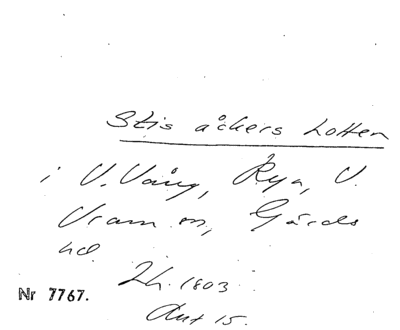 Stis åkers Lotten
i V. Vång, Rya, V.
Vram sn, Gärds
hd.
Lh. 1803
Nr 7767.
Ant 15.